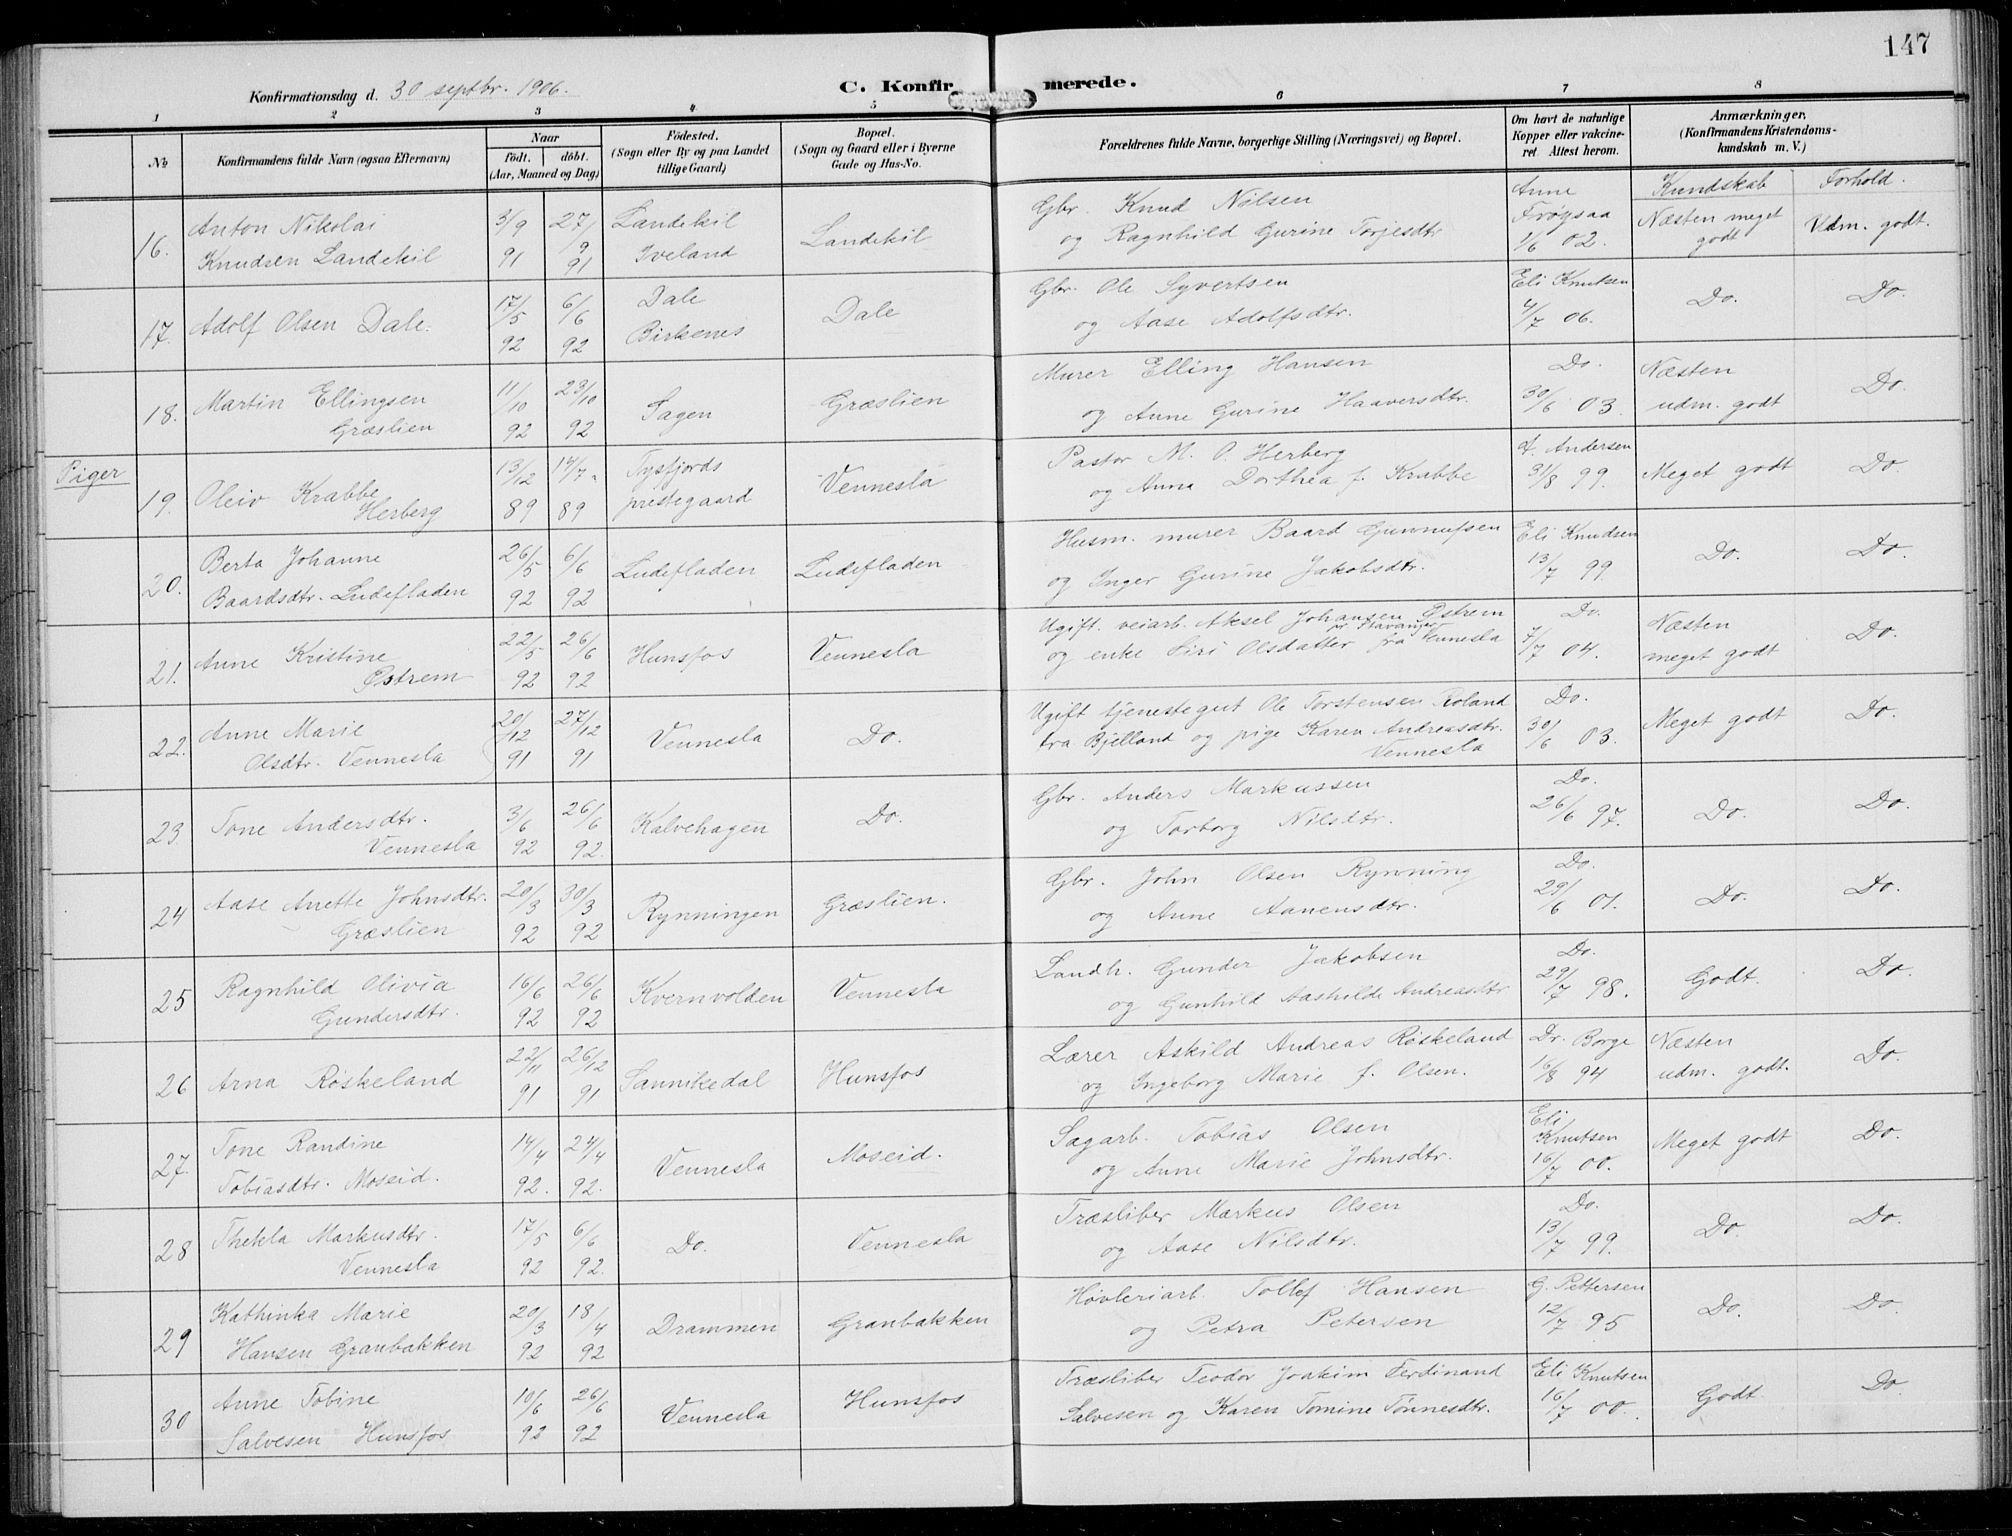 147
Konfirmationsdag d. 30 septbr. 1906.
C. Konfirmerede.
1 2 3 4 5 6 7 8
No
Konfirmandens fulde Navn (ogsaa Efternavn)
Naar
født. døbt.
(Aar, Maaned og Dag)
Fødested.
(Sogn eller By og paa Landet
tillige Gaard)
Bopæl.
(Sogn og Gaard eller i Byerne
Gade og Hus-No.
Forældrenes fulde Navne, borgerlige Stilling (Næringsvei) og Bopæl.
Om havt de naturlige
Kopper eller vakcine-
ret. Attest herom.
Anmærkninger,
(Konfirmandens Kristendoms-
kundskab m. V.)
Kundskab Forhold.
16. Anton Nikolai
Knudsen Landekil
3/9 91
27/9 91
Landekil
Iveland
Landekil
Gbr. Knud Nilsen
og Ragnhild Gurine Torjesdtr
Anne
Frøysaa
1/6 02.
Næsten meget
godt
Udm. godt.
17. Adolf Olsen Dale.
17/5 92
6/6 92
Dale
Birkenes
Dale
Gbr. Ole Syvertsen
og Aase Adolfsdtr.
Eli Knutsen
4/7 06.
Do.
Do.
18. Martin Ellingsen
Græslien
11/10 92
23/10 92
Sagen
Græslien
Murer Elling Hansen
og Anne Gurine Haaversdtr.
Do.
30/6 03.
Næsten
udm. godt
Do.
Piger
19. Oleiv Krabbe
Herberg
13/12 89
14/7 89
Tysfjords
prestegaard
Vennesla
Pastor M. O. Herberg
og Anna Dorthea f. Krabbe
A. Andersen
31/8 99.
Meget godt
Do.
20. Berta Johanne
Baardsdtr. Ludefladen
26/5 92
6/6 92
Ludefladen
Ludefladen
Husm. murer Baard Gunnufsen
og Inger Gurine Jakobsdtr.
Eli Knudsen
13/7 99.
Do.
Do.
21. Anne Kristine
Østrem
22/5 92
26/6 92
Hunsfos
Vennesla
Ugift. veiarb. Aksel Johansen Østrem
pr. Stavanger
og enke Siri Olsdatter fra Vennesla
Do.
7/7 04.
Næsten
meget godt
Do.
22. Anne Marie
Olsdtr. Vennesla
20/12 91
27/12 91
Vennesla
Do.
Ugift tjenestegut Ole Torstensen Roland
fra Bjelland og pige Karen Andreasdtr.
Vennesla
Do.
30/6 03.
Meget godt
Do.
23. Tone Andersdtr.
Vennesla
3/6 92
26/6 92.
Kalvehagen
Do.
Gbr. Anders Markussen
og Torborg Nilsdtr.
Do.
26/6 97.
Do.
Do.
24 Aase Anette Johnsdtr.
Græslien
20/3 92
30/3 92
Rynningen
Græslien.
Gbr. John Olsen Rynning
og Anne Aanensdtr.
Do.
29/6 01.
Do.
Do.
25 Ragnhild Olivia
Gundersdtr.
16/6 92
26/6 92
Kvernvolden
Vennesla
Landh. Gunder Jakobsen
og Gunhild Aashilde Andreasdtr
Do.
29/7 98.
Godt.
Do.
26 Arna Røskeland
22/11 91
26/12 91
Sannikedal
Hunsfos
Lærer Askild Andreas Røskeland
og Ingeborg Marie f. Olsen.
Dr. Borge
16/8 94
Næsten
udm. godt.
Do.
27. Tone Randine
Tobiasdtr. Moseid.
14/4 92.
24/4 92.
Vennesla
Moseid.
Sagarb. Tobias Olsen
og Anne Marie Johnsdtr.
Eli
Knutsen
16/7 00.
Meget godt
Do.
28 Thekla Markusdtr.
Vennesla
17/5 92
6/6 92.
Do.
Vennesla
Træsliber Markus Olsen
og Aase Nilsdtr.
Do.
13/7 99.
Do.
Do.
29 Kathinka Marie
Hansen Granbakken
20/3 92
18/4 92
Drammen
Granbakken
Høvleriarb. Tollef Hansen
og Petra Petersen
G. Pettersen
12/7 95
Do.
Do.
30 Anne Tobine
Salvesen Hunsfos
10/6 92
26/6 92
Vennesla
Hunsfos
Træsliber Teodor Joakim Ferdinand
Salvesen og Karen Tomine Tønnesdtr.
Eli Knutsen
16/7 00.
Godt
Do